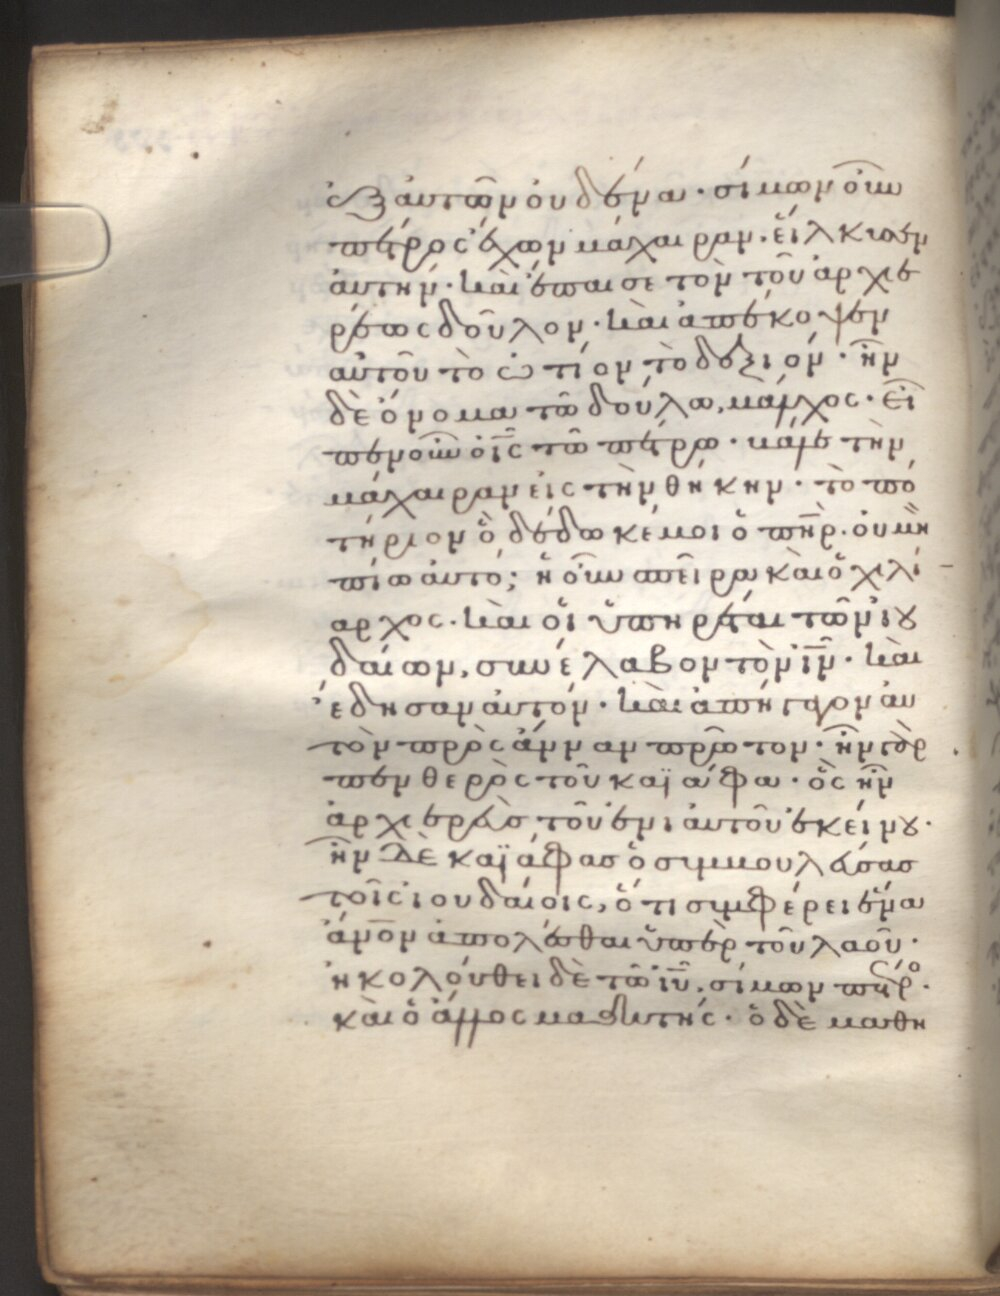 ἐξ ἀυτῶν ὀυδένα· σίμων ὀῦν
πέτρος ἔχων μάχαιραν· εἵλκυσεν
ἀυτήν· καὶ ἔπαισε τὸν τοῦ ἀρχιε
ρέως δοῦλον· καὶ ἀπέκοψεν
αὐτοῦ τὸ ὠτίον τὸ δεξιόν· ἦν
δὲ ὄνομα τῶ δούλω, μάλχος· εἶ
πεν οὖν ὁ ι̅ς̅ τῶ πέτρω· βάλε τὴν
μάχαιραν εἰς τὴν θήκην· τὸ πο
τήριον ὃ δέδωκέ μοι ὁ π̅η̅ρ̅. ὀυ μὴ
πίω ἀυτό; ἡ ὀῦν σπεῖρα καὶ ὁ χιλί
αρχος· καὶ ὁι ὑπηρέται τῶν ἰου
δαίων, συνέλαβον τὸν ι̅ν̅· καὶ
ἔδησαν ἀυτόν· καὶ ἀπήγαγον ἀυ
τὸν πρὸς ἄνναν πρῶτον· ἦν γὰρ
πενθερὸς τοῦ καϊάφα· ὃς ἦν
ἀρχιερεὺς τοῦ ἐνιαυτοῦ ἐκείνου·
ἦν δὲ καϊάφας ὁ συμβουλεύσας
τοῖς ἰουδαίοις, ὅτι συμφέρει ἕνα
ἄν̅ο̅ν̅ ἀπολέσθαι ὑπὲρ τοῦ λαοῦ·
ἠκολούθει δὲ τῶ ι̅υ̅, σίμων πέτρος·
καὶ ὁ ἄλλος μαθητής· ὁ δὲ μαθη